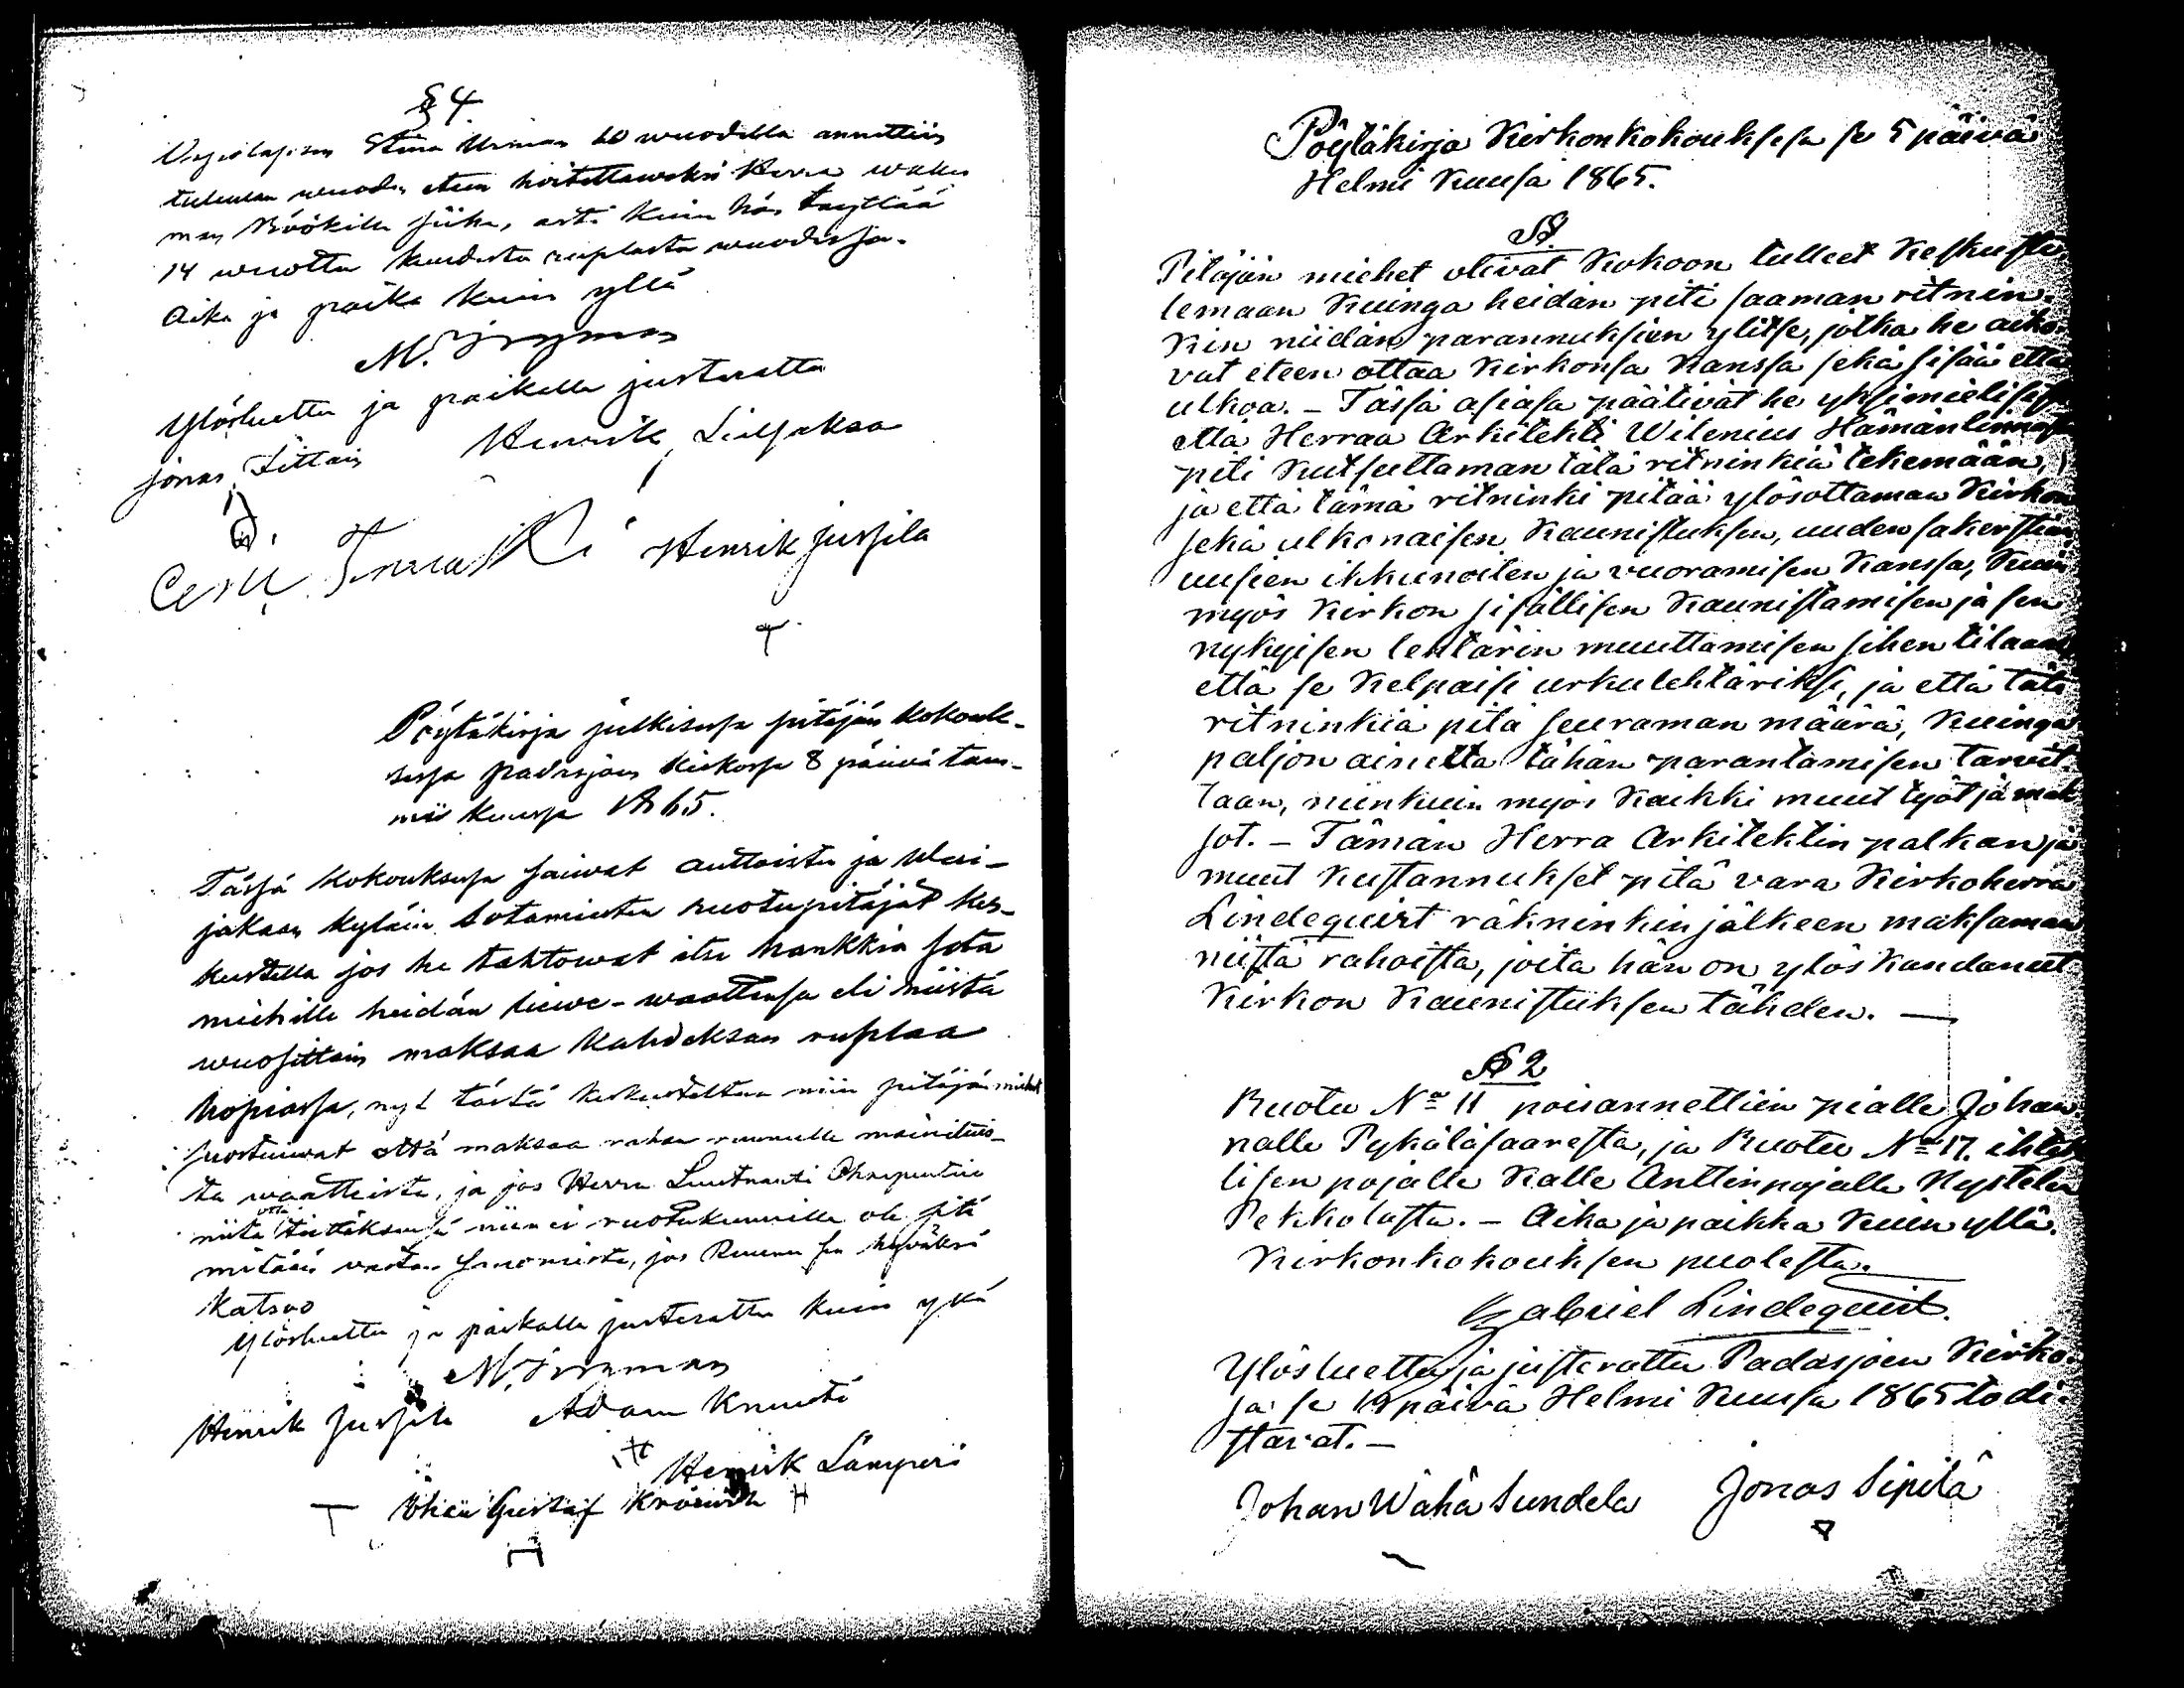 § 4.
Stina 10 wuodella annettiin
tulewan wuoden eteen hoitettawaksi Herra
Böökille siihen, asti kuin hän täyttää
14 wuotta kuudesta ruplasta wuodessa.
Aika ja paikka kuin yllä
M.
Ylösluettu ja paikalla justerattu
Jonas Henrik Liesjakso
Henrik Jussila
Pöytäkirja julkisessa pitäjän kokouk-
sessa Padasjoen kirkossa 8 päivä tam-
mi kuussa 1865.
Tässä kokouksessa saivat auttoisten ja
jakson kyläin sotamiesten ruotupitäjät kes-
kustella jos he tahtowat itse hankkia sota
miehille heidän liiwe-waattensa eli niistä
wuosittain maksaa kahdeksan ruplaa
hopiassa, nyt tästä keskusteltua niin pitäjän miehet
suostuiwat että maksaa rahaa ruunulle mainituis-
ta waatteista, ja jos Herra Luutnantti
niitä otta niin ei ruotukunnilla ole sitä
mitään vastaan sanomista, jos Ruunu sen hywäksi
katsoo
Ylösluettu ja paikalla justerattu kuin yllä
M.
Henrik Jussila Adam Knuuti
Henrik Lämperi
Johan Gustaf
Pöytäkirja Kirkonkokouksessa se 5 päivä
Helmi Kuussa 1865.
§ 1.
Pitäjän miehet olivat Kokoon tulleet Keskuste-
lemaan Kuinga heidän piti saaman ritnin-
kin niidän parannuksien ylitse, jotka he aiko-
vat eteen ottaa Kirkonsa Kanssa sekä sisää että
ulkoa. – Tässä asiasa päätivät he yksimielisesti
että Herraa Arkitehti Wilenius Hämänlinnast
piti Kutsuttaman tätä ritninkiä tekemään,
ja että tämä ritninki pitää ylösottaman Kirkon
sekä ulkonaisen Kaunistuksen, uuden sakerstian,
uusien ikkunoiten ja vuoramisen Kanssa, Kuin
myös Kirkon sisällisen Kaunistamisen ja sen
nykyisen lehtärin muuttamisen siihen tilaan,
että se Kelpaisi urkulehtäriksi, ja että tätä
ritninkiä pitä seuraman määrä, Kuinga
paljon ainetta tähän parantamisen tarvit-
taan, niinkuin myös Kaikki muut työt ja mak-
sot. – Tämän Herra Arkitehtin palkan ja
muut Kustannukset pitä vara Kirkoherra
Lindequist räkninkin jälkeen maksaman
niistä rahoista, joita hän on ylös Kandanut
Kirkon Kaunistuksen tähden. —
§ 2
Ruotu No 11 poisannettiin pialle Johan
nalle Pykäläsaaresta, ja Ruotu No 17.
lisen pojalle Kalle Anttinpojalle Nystelä
Pekkolasta. – Aika ja paikka Kuin yllä.
Kirkonkokouksen puolesta.
Gabriel Lindequist.
Ylösluettu ja justerattu Padasjoen Kirko-
sa se 19 päivä Helmi Kuussa 1865 todi-
stavat. –
Johan Wähä Sundela Jonas Sipilä